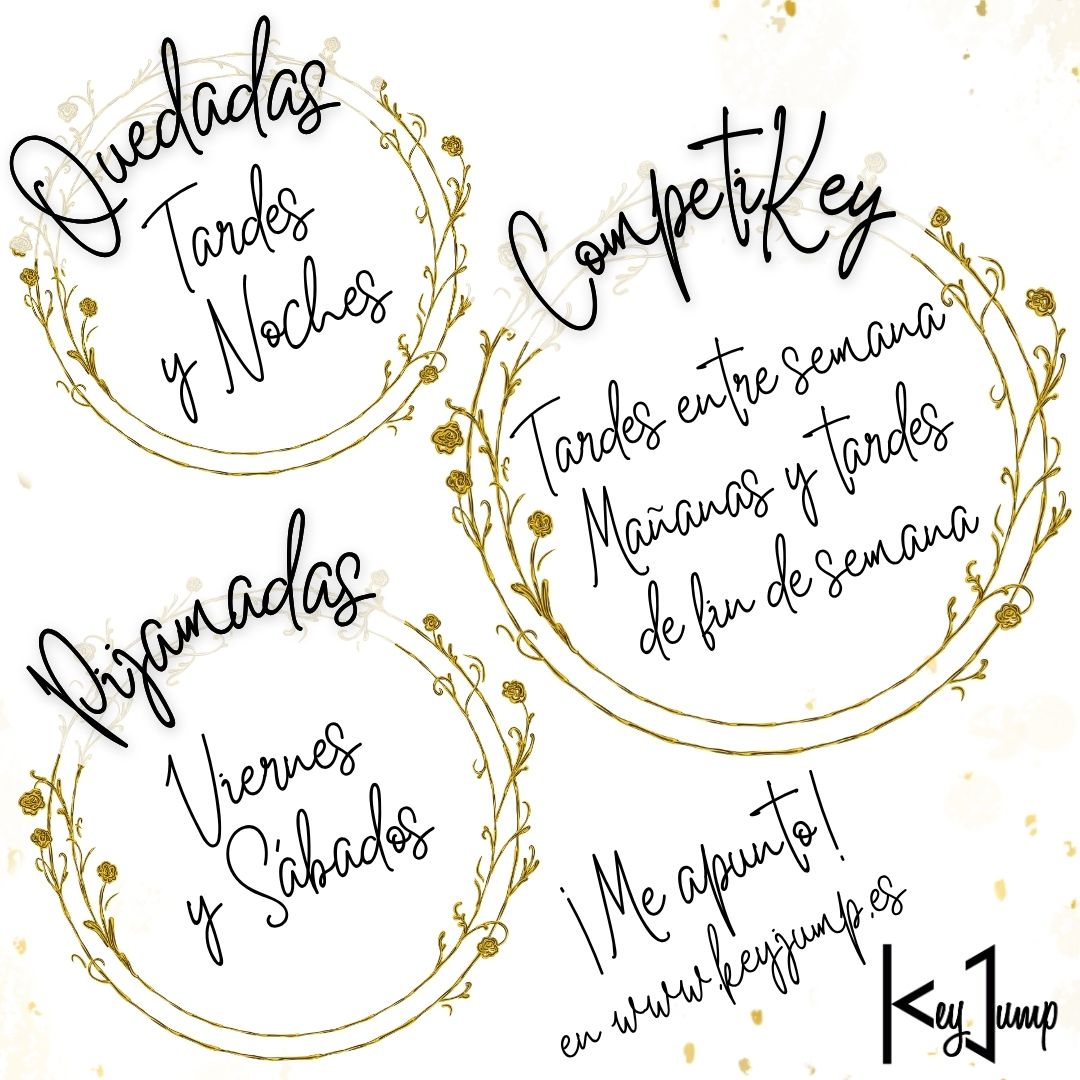 Quedadas
Tardes
y Noches
CompetiKey
Tardes entre semana
Mañanas y tardes
de fin de semana
Pijamadas
Viernes
y Sábados
¡Me apunto!
en www.keyjump.es
KeyJump